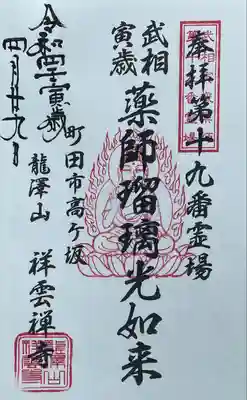 奉拝第十九番霊場
武相
寅歳
薬師瑠璃光如来
町田市高ヶ坂
龍澤山 祥雲禅寺
令和四壬寅歳
四月廿九日